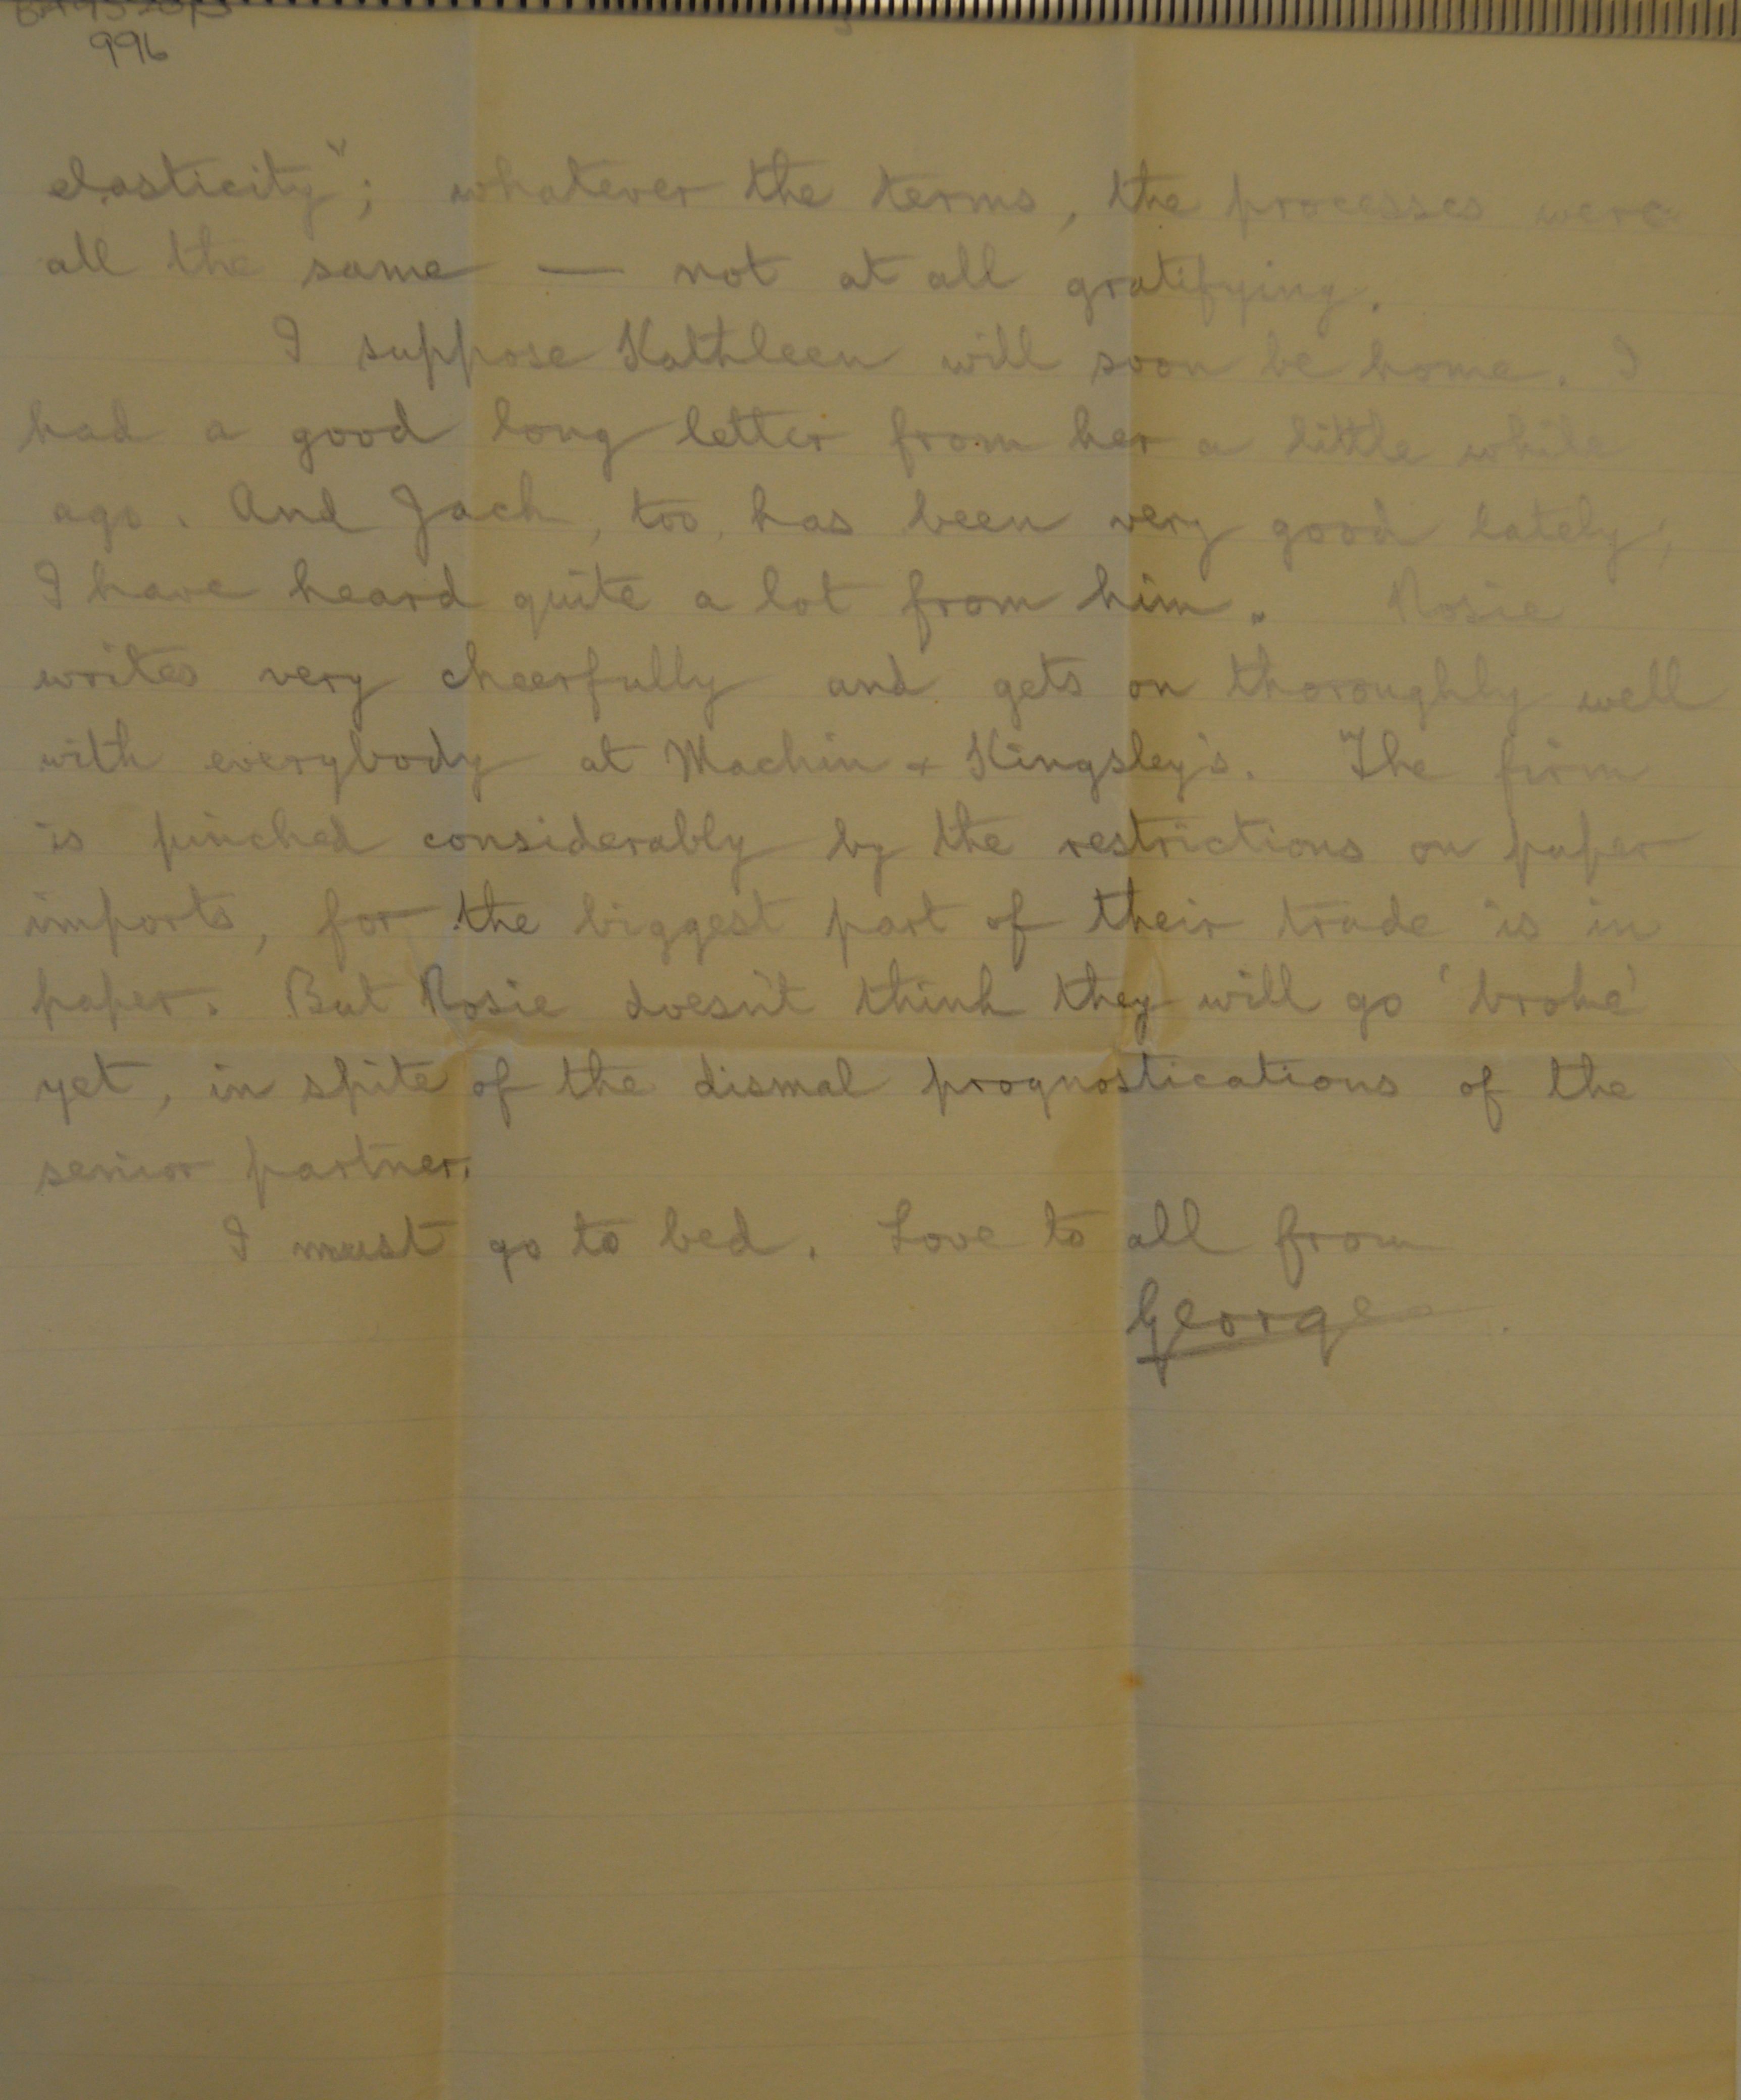 996
elasticity"; whatever the terms, the processes were
all the same — not at all gratifying.
I suppose Kathleen will soon be home. I
had a good long letter from her a little while
ago. And Jack, too, has been very good lately;
I have heard quite a lot from him. Rosie
writes very cheerfully and gets on thoroughly well
with everybody at Machin & Kingsley's. The firm
is pinched considerably by the restrictions on paper
imports, for the biggest part of their trade is in
paper. But Rosie doesn't think they will go 'broke'
yet, in spite of the dismal prognostications of the
senior partner.
I must go to bed. Love to all from
George